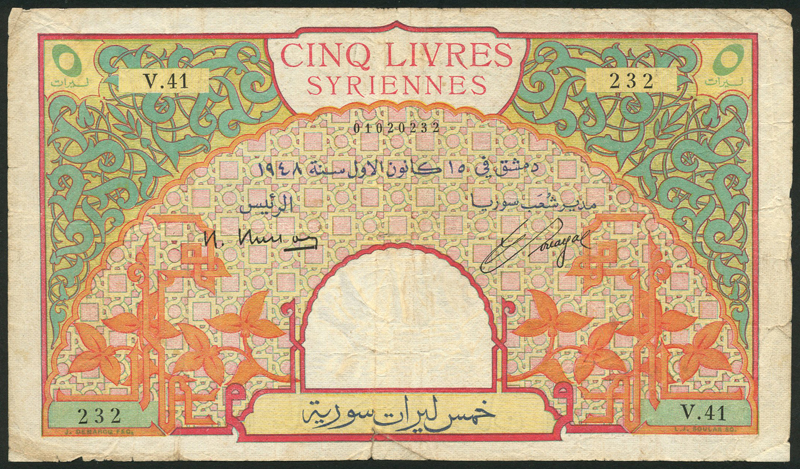 CINQ LIVRES
SYRIENNES
٥
ليرات
V.41
232
٥
ليرات
01020232
دمشق في ١٥ كانون الاول سنة ١٩٤٨
مدير شعب سوريا
الرئيس
خمس ليرات سورية
232
V.41